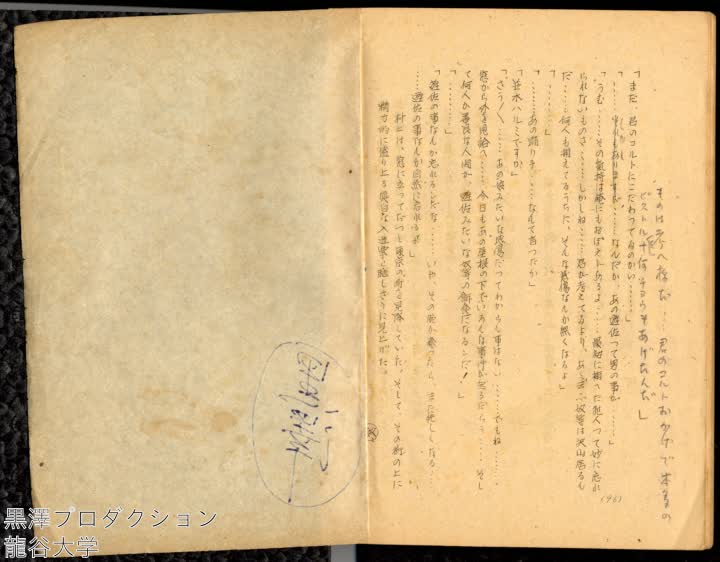 ものは考へ様だ……君のコルトおかげで本多の
ピストル十何チョウもあげたんだ」
「まだ、君のコルトにこだわつてるのかい……」
「……それもありますが……なんだか、あの遊佐つて男の事が……
「うむ……その気持は誰にもおぼえがあるよ……最初に捕へた犯人つて妙に忘れ
られないものさ……しかしね……君が考へてるより、あゝ云ふ奴等は沢山居るも
んだ……何人も捕えてるうちに、そんな感傷なんか無くなるよ」
「…………」
「……あの踊り子……なんて言つたか」
「並木ハルミですか」
「さう／＼……あの娘みたいな感傷だつてわからん事はない……でもね……
窓から外を見給へ……今日もあの屋根の下でいろんな事件が起るだらう……そし
て何人か善良な人間が、遊佐みたいな奴等の餌食になるンだ！」
「…………」
「遊佐の事なんか忘れるンだな……いや、その腕が癒つたら、また忙しくなる……
……遊佐の事なんか自然に忘れるよ」
村上は、窓に立つてだつと東京の街を見降していた。そして、その街の上に
精力的に盛り上る真白な入道雲を眩しさうに見上げた。
(96)
黒澤プロダクション
龍谷大学